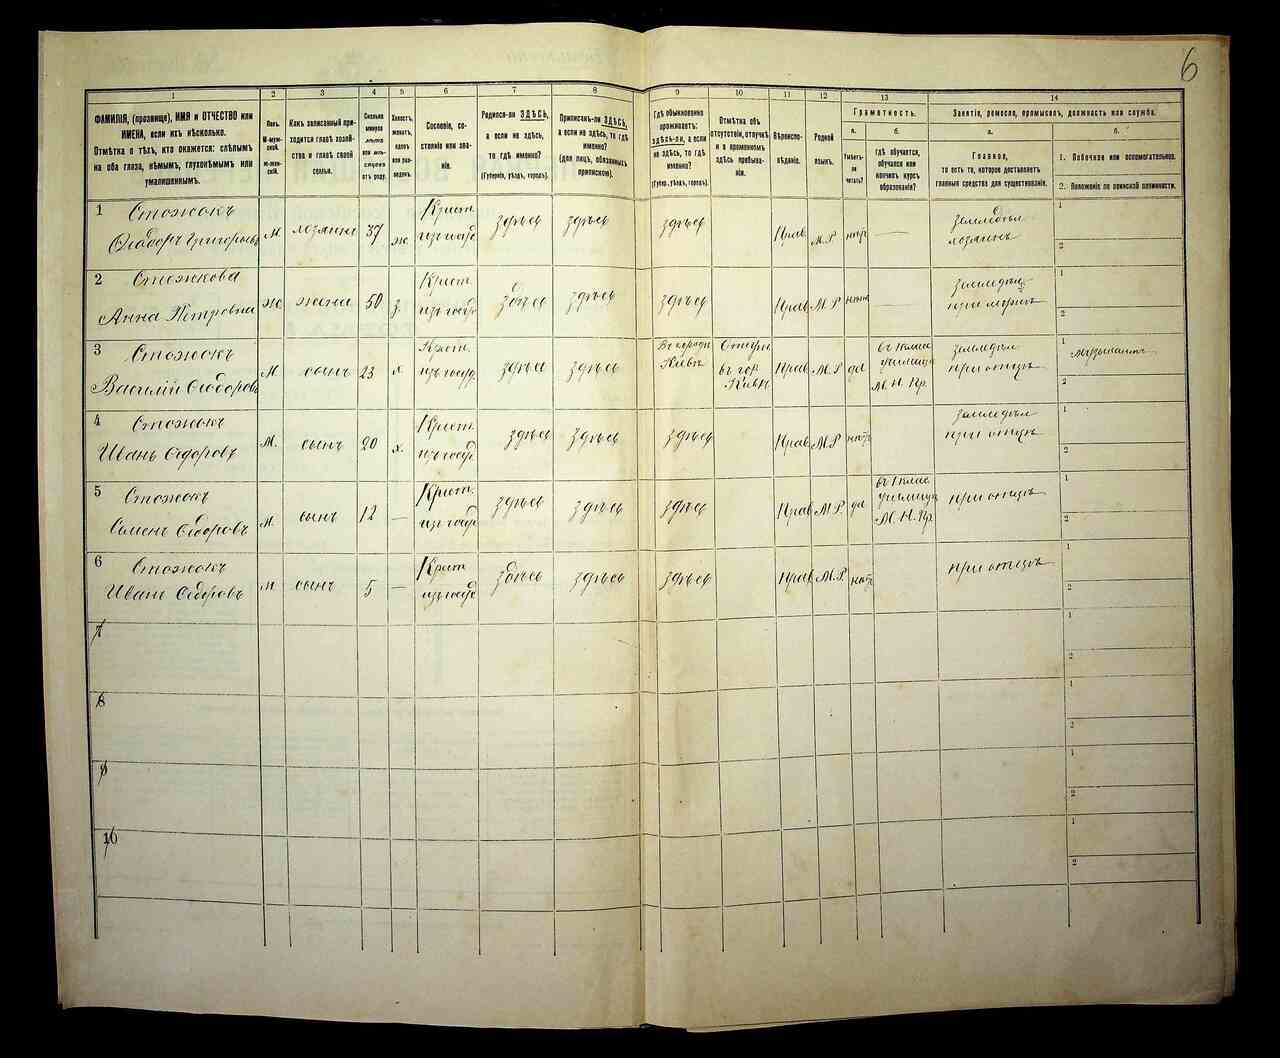 6
1 2 3 4 5 6 7 8 9 10 11 12 13 14
ФАМИЛІЯ, (прозвище), ИМЯ и ОТЧЕСТВО или ИМЕНА, если ихъ нѣсколько.
Отмѣтка о тѣхъ, кто окажется: слѣпымъ на оба глаза, нѣмымъ, глухонѣмымъ или умалишеннымъ.
Полъ.
М-мужской.
Ж-женскій.
Какъ записанный приходится главѣ хозяйства и главѣ своей семьи.
Сколько минуло лѣтъ или мѣсяцевъ отъ роду.
Холостъ, женатъ, вдовъ или разведенъ.
Сословіе, состояніе или званіе.
Родился-ли ЗДѢСЬ, а если не здѣсь, то гдѣ именно?
(Губернія, уѣздъ, городъ).
Приписанъ-ли ЗДѢСЬ, а если не здѣсь, то гдѣ именно?
(для лицъ, обязанныхъ припиской).
Гдѣ обыкновенно проживаетъ: здѣсь-ли, а если не здѣсь, то гдѣ именно?
(Губерн., уѣздъ, городъ).
Отмѣтка объ отсутствіи, отлучкѣ и о временномъ здѣсь пребываніи.
Вѣроисповѣданіе.
Родной языкъ.
Грамотность.
а.
Умѣетъ-ли читать?
б.
гдѣ обучается, обучался или кончилъ курсъ образованія?
Занятіе, ремесло, промыселъ, должность или служба.
а.
Главное,
то есть то, которое доставляетъ главныя средства для существованія.
б.
1. Побочное или вспомогательное.
2. Положеніе по воинской повинности.
1 Стожокъ
Ѳеодоръ Григорьевъ м хозяинъ 57 ж Крест. изъ госуд. здѣсь здѣсь здѣсь Прав М.Р нѣтъ — земледѣл. хозяинъ 1 2
2 Стожкова
Анна Петровна ж. жена 50 з. Крест. изъ госуд. здѣсь здѣсь здѣсь Прав М.Р нѣтъ — земледѣл. при мужѣ 1 2
3 Стожокъ
Василій Ѳедоровъ м. сынъ 23 х Крест. изъ госуд. здѣсь здѣсь Въ городѣ Кіевѣ Отлуч. въ гор. Кіевѣ Прав М.Р да въ 1 клас училищѣ М. Н. Пр. земледѣл при отцѣ 1 музыкантъ 2
4 Стожокъ
Иванъ Ѳедоровъ м. сынъ 20 х. Крест. изъ госуд здѣсь здѣсь здѣсь Прав М.Р нѣтъ земледѣл при отцѣ 1 2
5 Стожокъ
Семенъ Ѳедоровъ м. сынъ 12 — Крест. изъ госуд здѣсь здѣсь здѣсь Прав М.Р да въ 1 клас училищѣ М. Н. Пр. при отцѣ 1 2
6 Стожокъ
Иванъ Ѳедоровъ м сынъ 5 — Крест изъ госуд здѣсь здѣсь здѣсь Прав М.Р нѣтъ при отцѣ 1 2
7 1 2
8 1 2
9 1 2
10 1 2